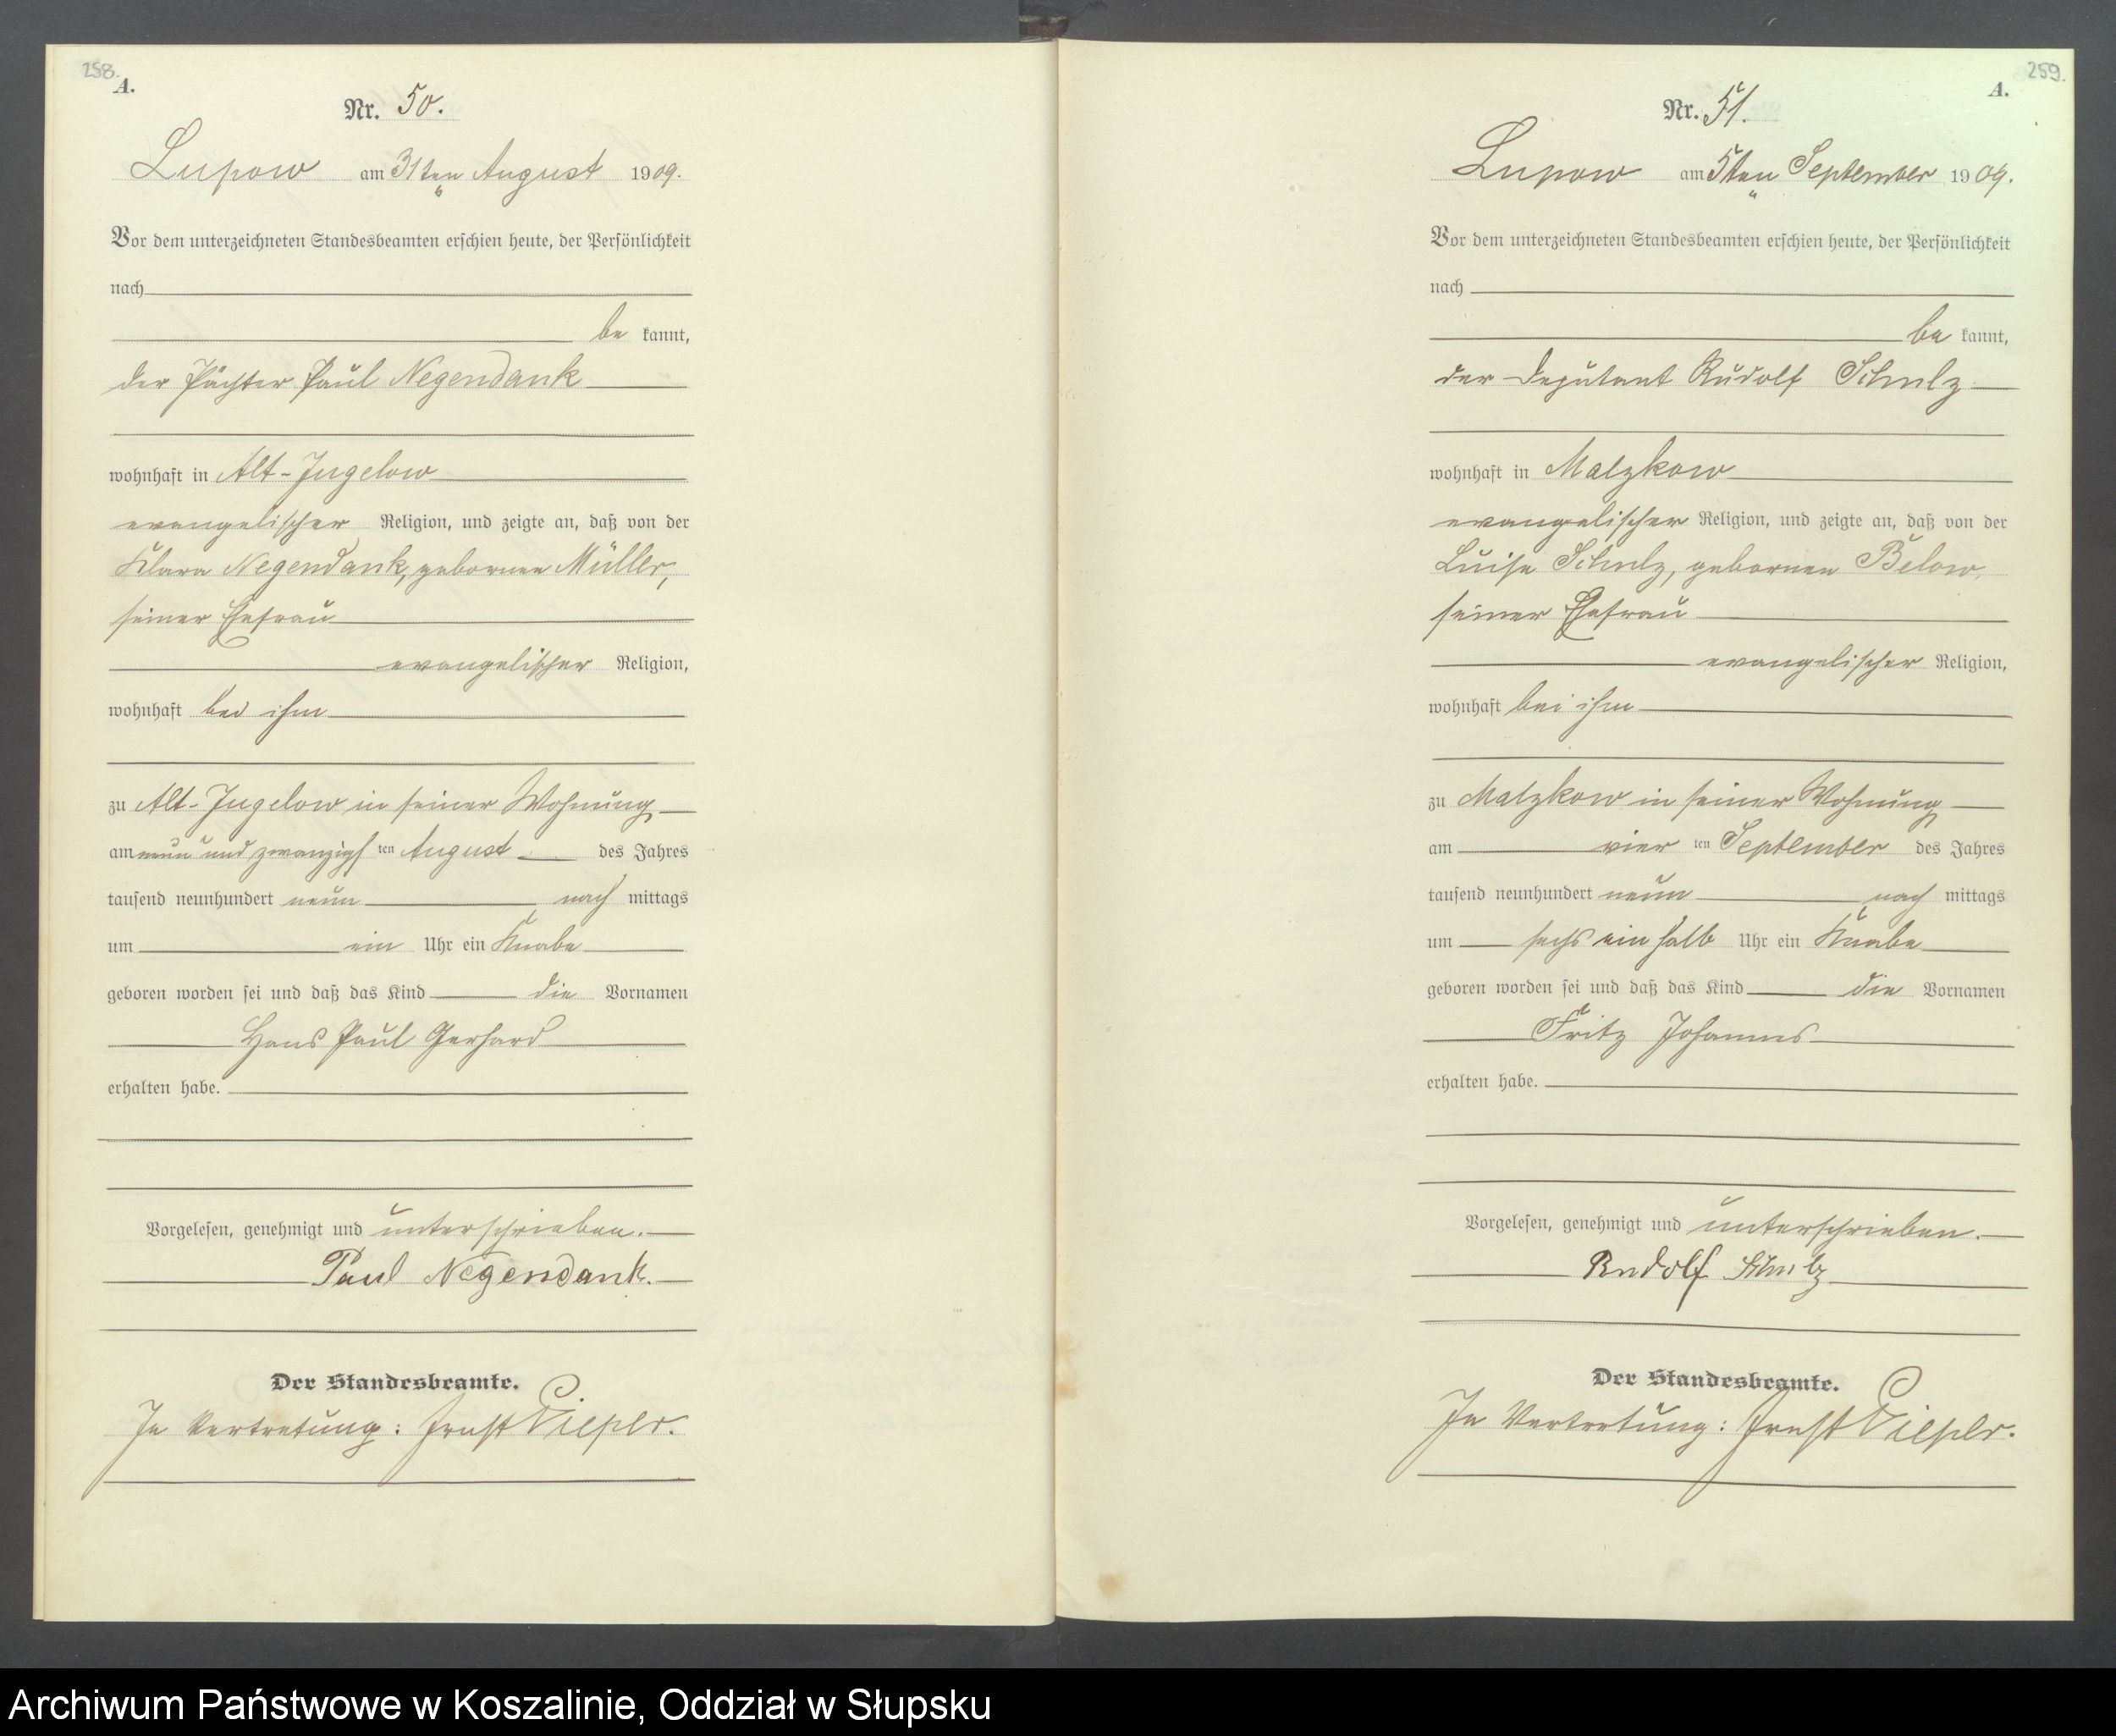 258.
A.
Nr. 50.
Lupow am 31ten August 1909.
Vor dem unterzeichneten Standesbeamten erschien heute, der Persönlichkeit
nach
be kannt,
der Pächter Paul Negendank
wohnhaft in Alt-Jugelow
evangelischer Religion, und zeigte an, daß von der
Klara Negendank, geborenen Müller,
seiner Ehefrau
evangelischer Religion,
wohnhaft bei ihm
zu Alt-Jugelow in seiner Wohnung
am neun und zwanzigsten August des Jahres
tausend neunhundert neun nach mittags
um ein Uhr ein Knabe
geboren worden sei und daß das Kind die Vornamen
Hans Paul Gerhard
erhalten habe.
Vorgelesen, genehmigt und unterschrieben.
Paul Negendank.
Der Standesbeamte.
In Vertretung: Ernst Piepkr.
259.
A.
Nr. 51.
Lupow am 5ten September 1909.
Vor dem unterzeichneten Standesbeamten erschien heute, der Persönlichkeit
nach
be kannt,
der Deputant Rudolf Schulz
wohnhaft in Malzkow
evangelischer Religion, und zeigte an, daß von der
Luise Schulz, geborenen Below,
seiner Ehefrau
evangelischer Religion,
wohnhaft bei ihm
zu Malzkow in seiner Wohnung
am vier ten September des Jahres
tausend neunhundert neun nach mittags
um sechs ein halb Uhr ein Knabe
geboren worden sei und daß das Kind die Vornamen
Fritz Johannes
erhalten habe.
Vorgelesen, genehmigt und unterschrieben.
Rudolf Schulz
Der Standesbeamte.
In Vertretung: Ernst
Archiwum Państwowe w Koszalinie, Oddział w Słupsku